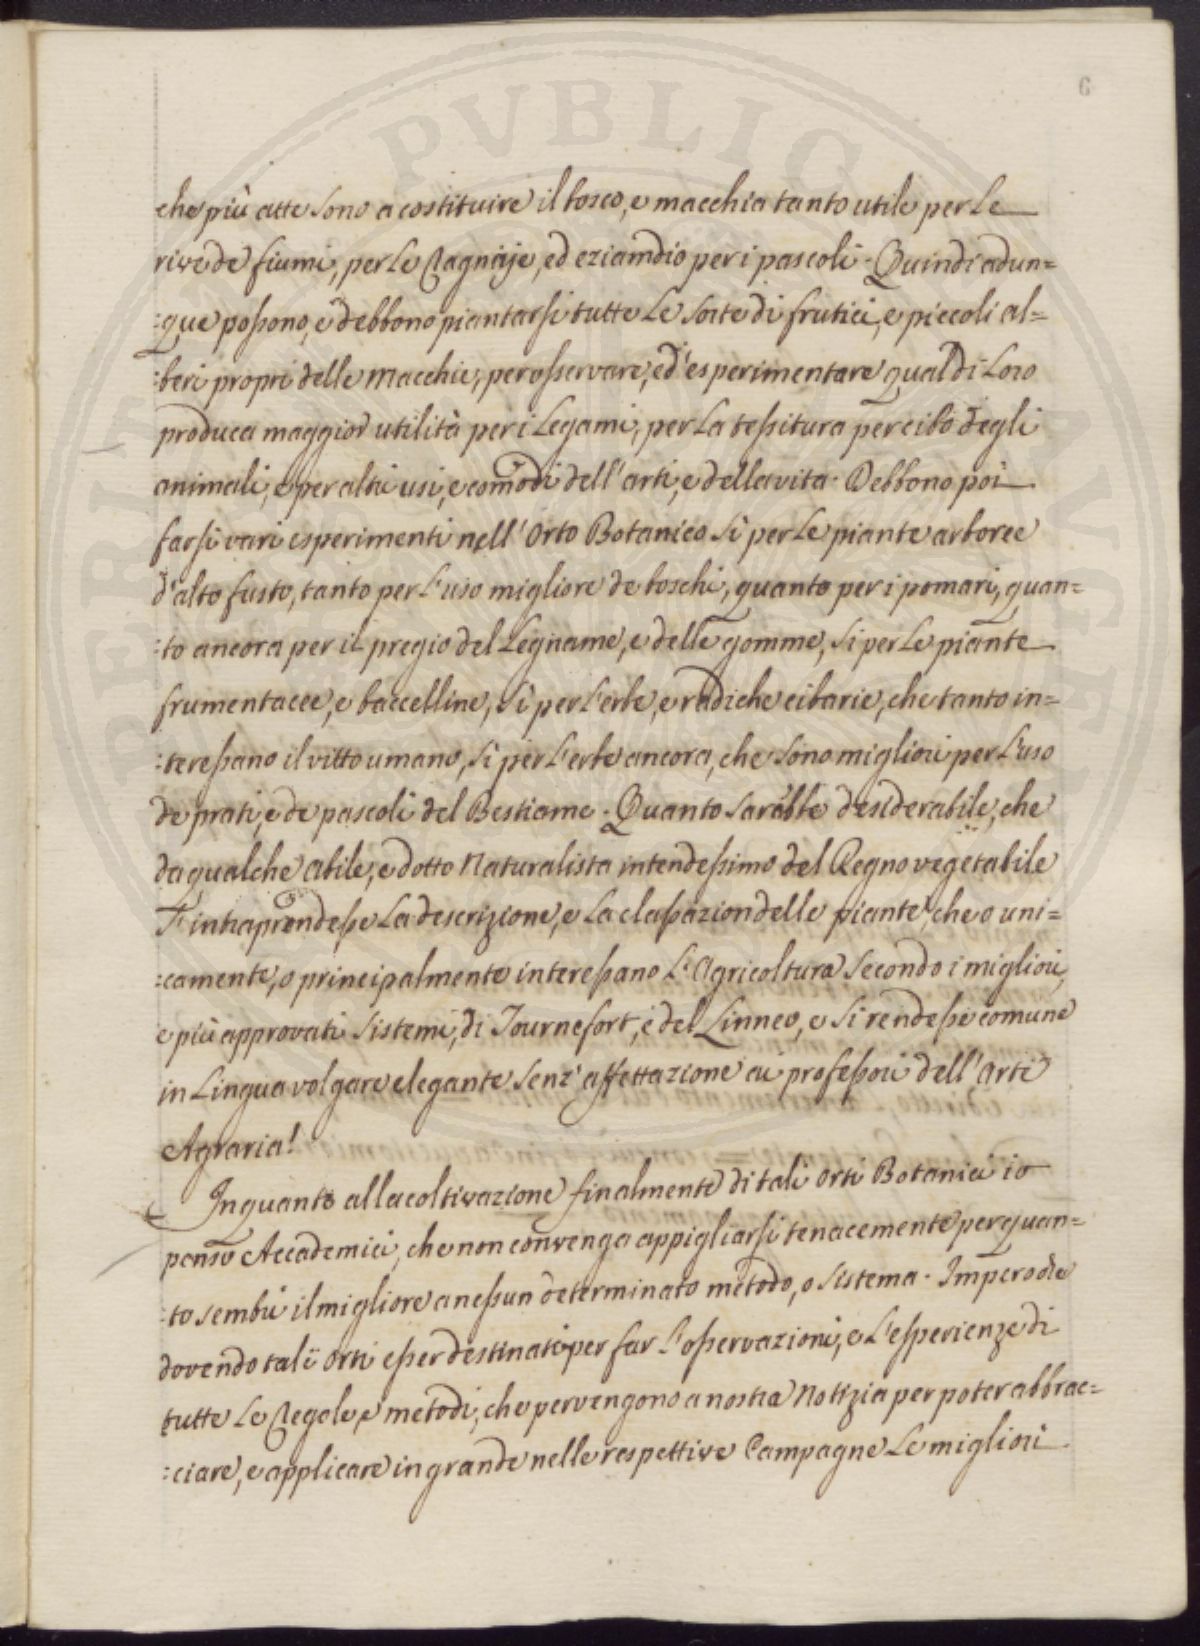 6
che più atte sono a costituire il bosco, e macchia tanto utile per le
rive de fiumi, per le Ragnaje, ed eziamdio per i pascoli. Quindi adun=
=que possono, e debbono piantarsi tutte le sorte di frutici, e piccoli al=
=beri propri delle macchie, per osservare, ed' esperimentare qual di loro
produca maggior utilità per i legami, per la tessitura per cibo degli
animali, e per altri usi, e comodi dell' arti, e della vita. Debbono poi
farsi vari esperimenti nell' Orto Botanico sì per le piante arboree
d'alto fusto, tanto per l'uso migliore de boschi, quanto per i pomari, quan=
=to ancora per il pregio del legname, e delle gomme, sì per le piante
frumentacee, e baccelline, sì per l'erbe, e radiche cibarie, che tanto in=
=teressano il vitto umano, sì per l'erbe ancora, che sono migliori per l'uso
de prati, e de pascoli del Bestiame. Quanto sarebbe desiderabile, che
da qualche abile, e dotto Naturalista intendessimo del Regno vegetabile
s'intraprendesse la descrizione, e la classazion delle piante, che o uni=
=camente, o principalmente interessano l'Agricoltura secondo i migliori,
e più approvati sistemi, di Tournefort, e del Linneo, e si rendesse comune
in lingua volgare elegante senz' affettazione ai professori dell' Arte
Agraria!
In quanto alla coltivazione finalmente di tali Orti Botanici io
penso Accademici, che non convenga appigliarsi tenacemente per quan=
=to sembri il migliore a nessun determinato metodo, o sistema. Imperocche
dovendo tali Orti esser destinati per far l'osservazioni, e l'esperienze di
tutte le Regole, e metodi, che pervengono a nostra Notizia per poter abbrac=
=ciare, e applicare in grande nelle respettive Campagne le migliori
PVBLIC